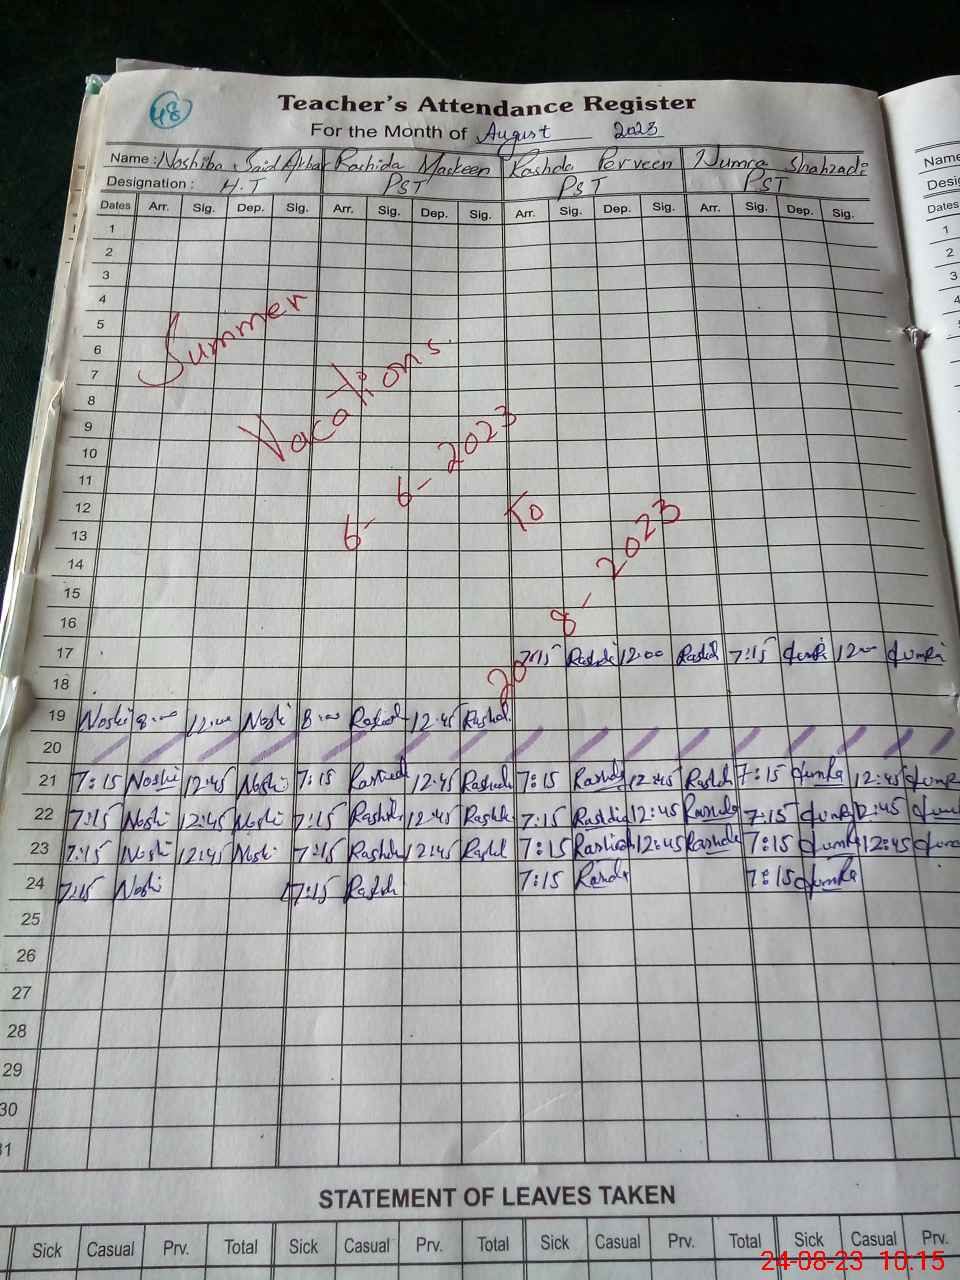 48
Teacher's Attendance Register
For the Month of August 2023
Name : Noshiba Said Akbar Rashida Maskeen Rashda Perveen Numra Shahzadi Name
Designation : H.T PST PST PST Desig
Dates Arr. Sig. Dep. Sig. Arr. Sig. Dep. Sig. Arr. Sig. Dep. Sig. Arr. Sig. Dep. Sig. Dates
1 1
2 2
3 3
4 4
5 5
6 6
7 7
8 8
9 9
10 10
11 11
12
13
14
15
16
Summer
Vacations.
6-6-2023
To
20-8-2023
17 7:15 12:00 7:15 12:00
18
19 Noshi 8:00 12:00 Noshi 8:00 12:45
20
21 7:15 Noshi 12:45 Noshi 7:15 12:45 7:15 12:45 7:15 12:45
22 7:15 Noshi 12:45 Noshi 7:15 12:45 7:15 12:45 7:15 12:45
23 7:15 Noshi 12:45 Noshi 7:15 12:45 7:15 12:45 7:15 12:45
24 7:15 Noshi 7:15 7:15 7:15
25
26
27
28
29
30
31
STATEMENT OF LEAVES TAKEN
Sick Casual Prv. Total Sick Casual Prv. Total Sick Casual Prv. Total Sick Casual Prv.
24-08-23 10:15